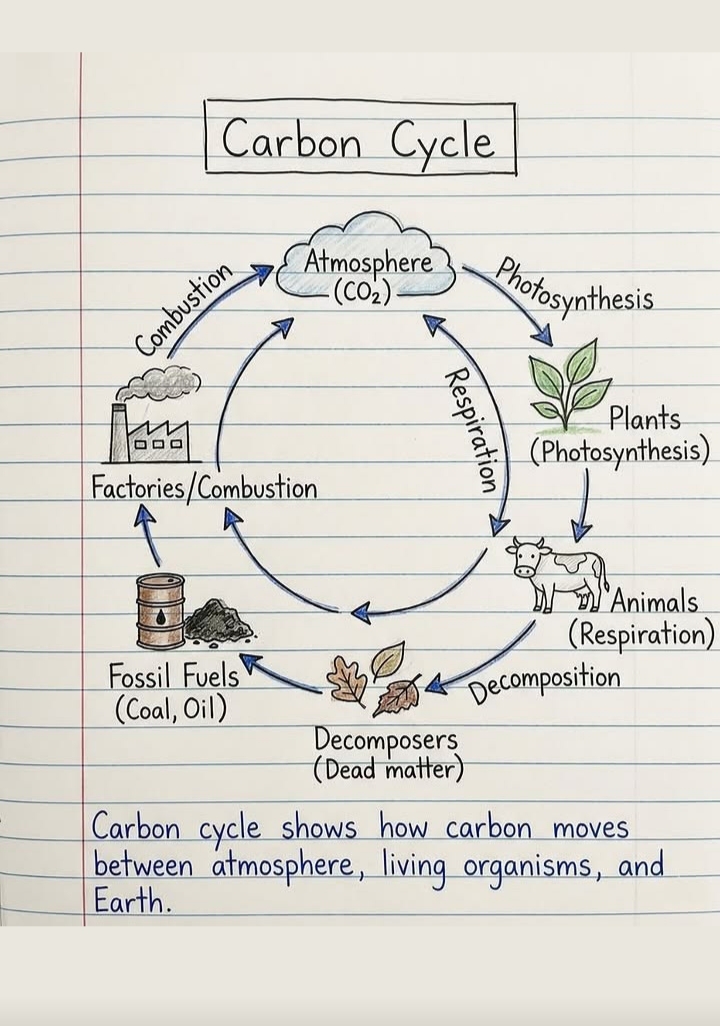 Carbon Cycle
Atmosphere
(CO₂)
Combustion
Photosynthesis
Respiration
Plants
(Photosynthesis)
Factories/Combustion
Animals
(Respiration)
Fossil Fuels
(Coal, Oil)
Decomposition
Decomposers
(Dead matter)
Carbon cycle shows how carbon moves
between atmosphere, living organisms, and
Earth.